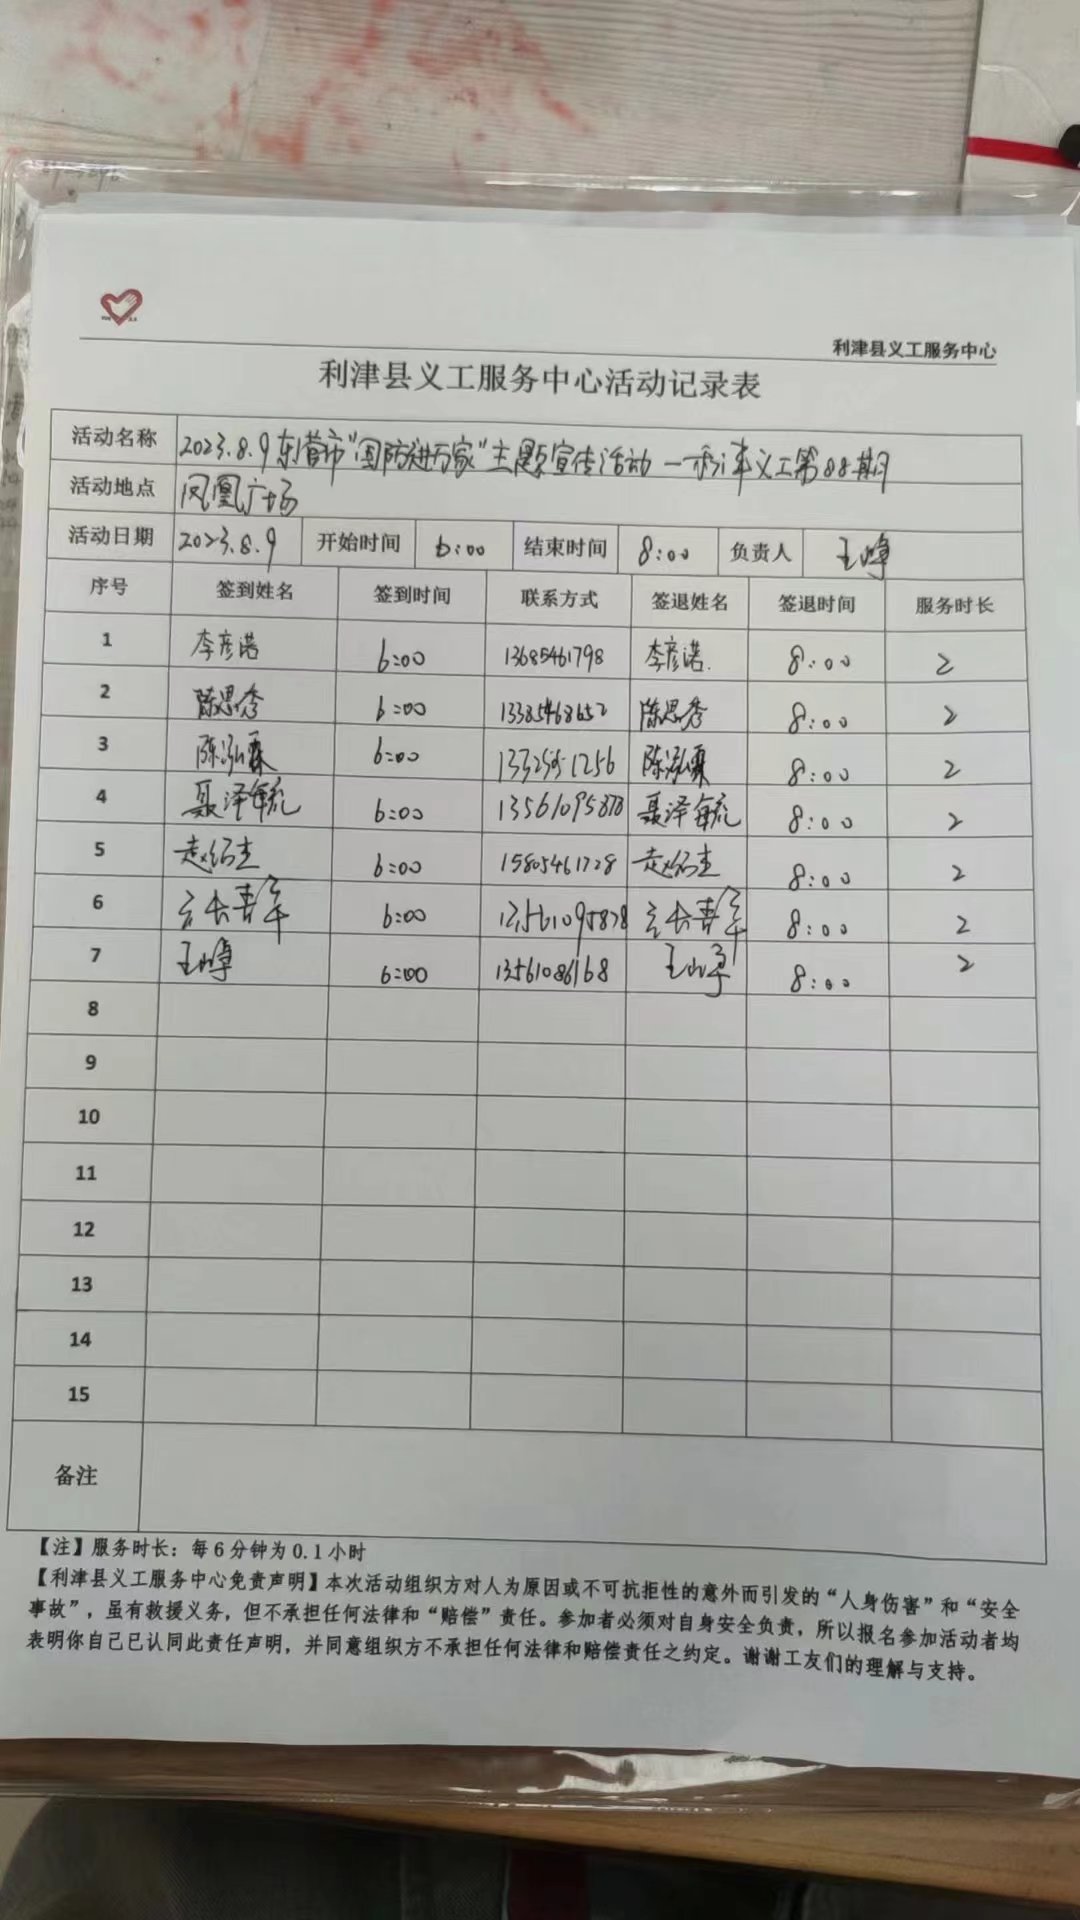 利津县义工服务中心
利津县义工服务中心活动记录表
活动名称 2023.8.9东营市“国防进万家”主题宣传活动—利津义工第88期
活动地点 凤凰广场
活动日期 2023.8.9 开始时间 6:00 结束时间 8:00 负责人 王峥
序号 签到姓名 签到时间 联系方式 签退姓名 签退时间 服务时长
1 李彦诺 6:00 13685461798 李彦诺 8:00 2
2 陈思秀 6:00 13385468652 陈思秀 8:00 2
3 陈泓霖 6:00 陈泓霖 8:00 2
4 聂泽毓 6:00 13561095878 聂泽毓 8:00 2
5 赵绍杰 6:00 15805461728 赵绍杰 8:00 2
6 6:00 13561095878 8:00 2
7 王峥 6:00 13561086168 王峥 8:00 2
8
9
10
11
12
13
14
15
备注
【注】服务时长：每6分钟为0.1小时
【利津县义工服务中心免责声明】本次活动组织方对人为原因或不可抗拒性的意外而引发的“人身伤害”和“安全
事故”，虽有救援义务，但不承担任何法律和“赔偿”责任。参加者必须对自身安全负责，所以报名参加活动者均
表明你自己已认同此责任声明，并同意组织方不承担任何法律和赔偿责任之约定。谢谢工友们的理解与支持。